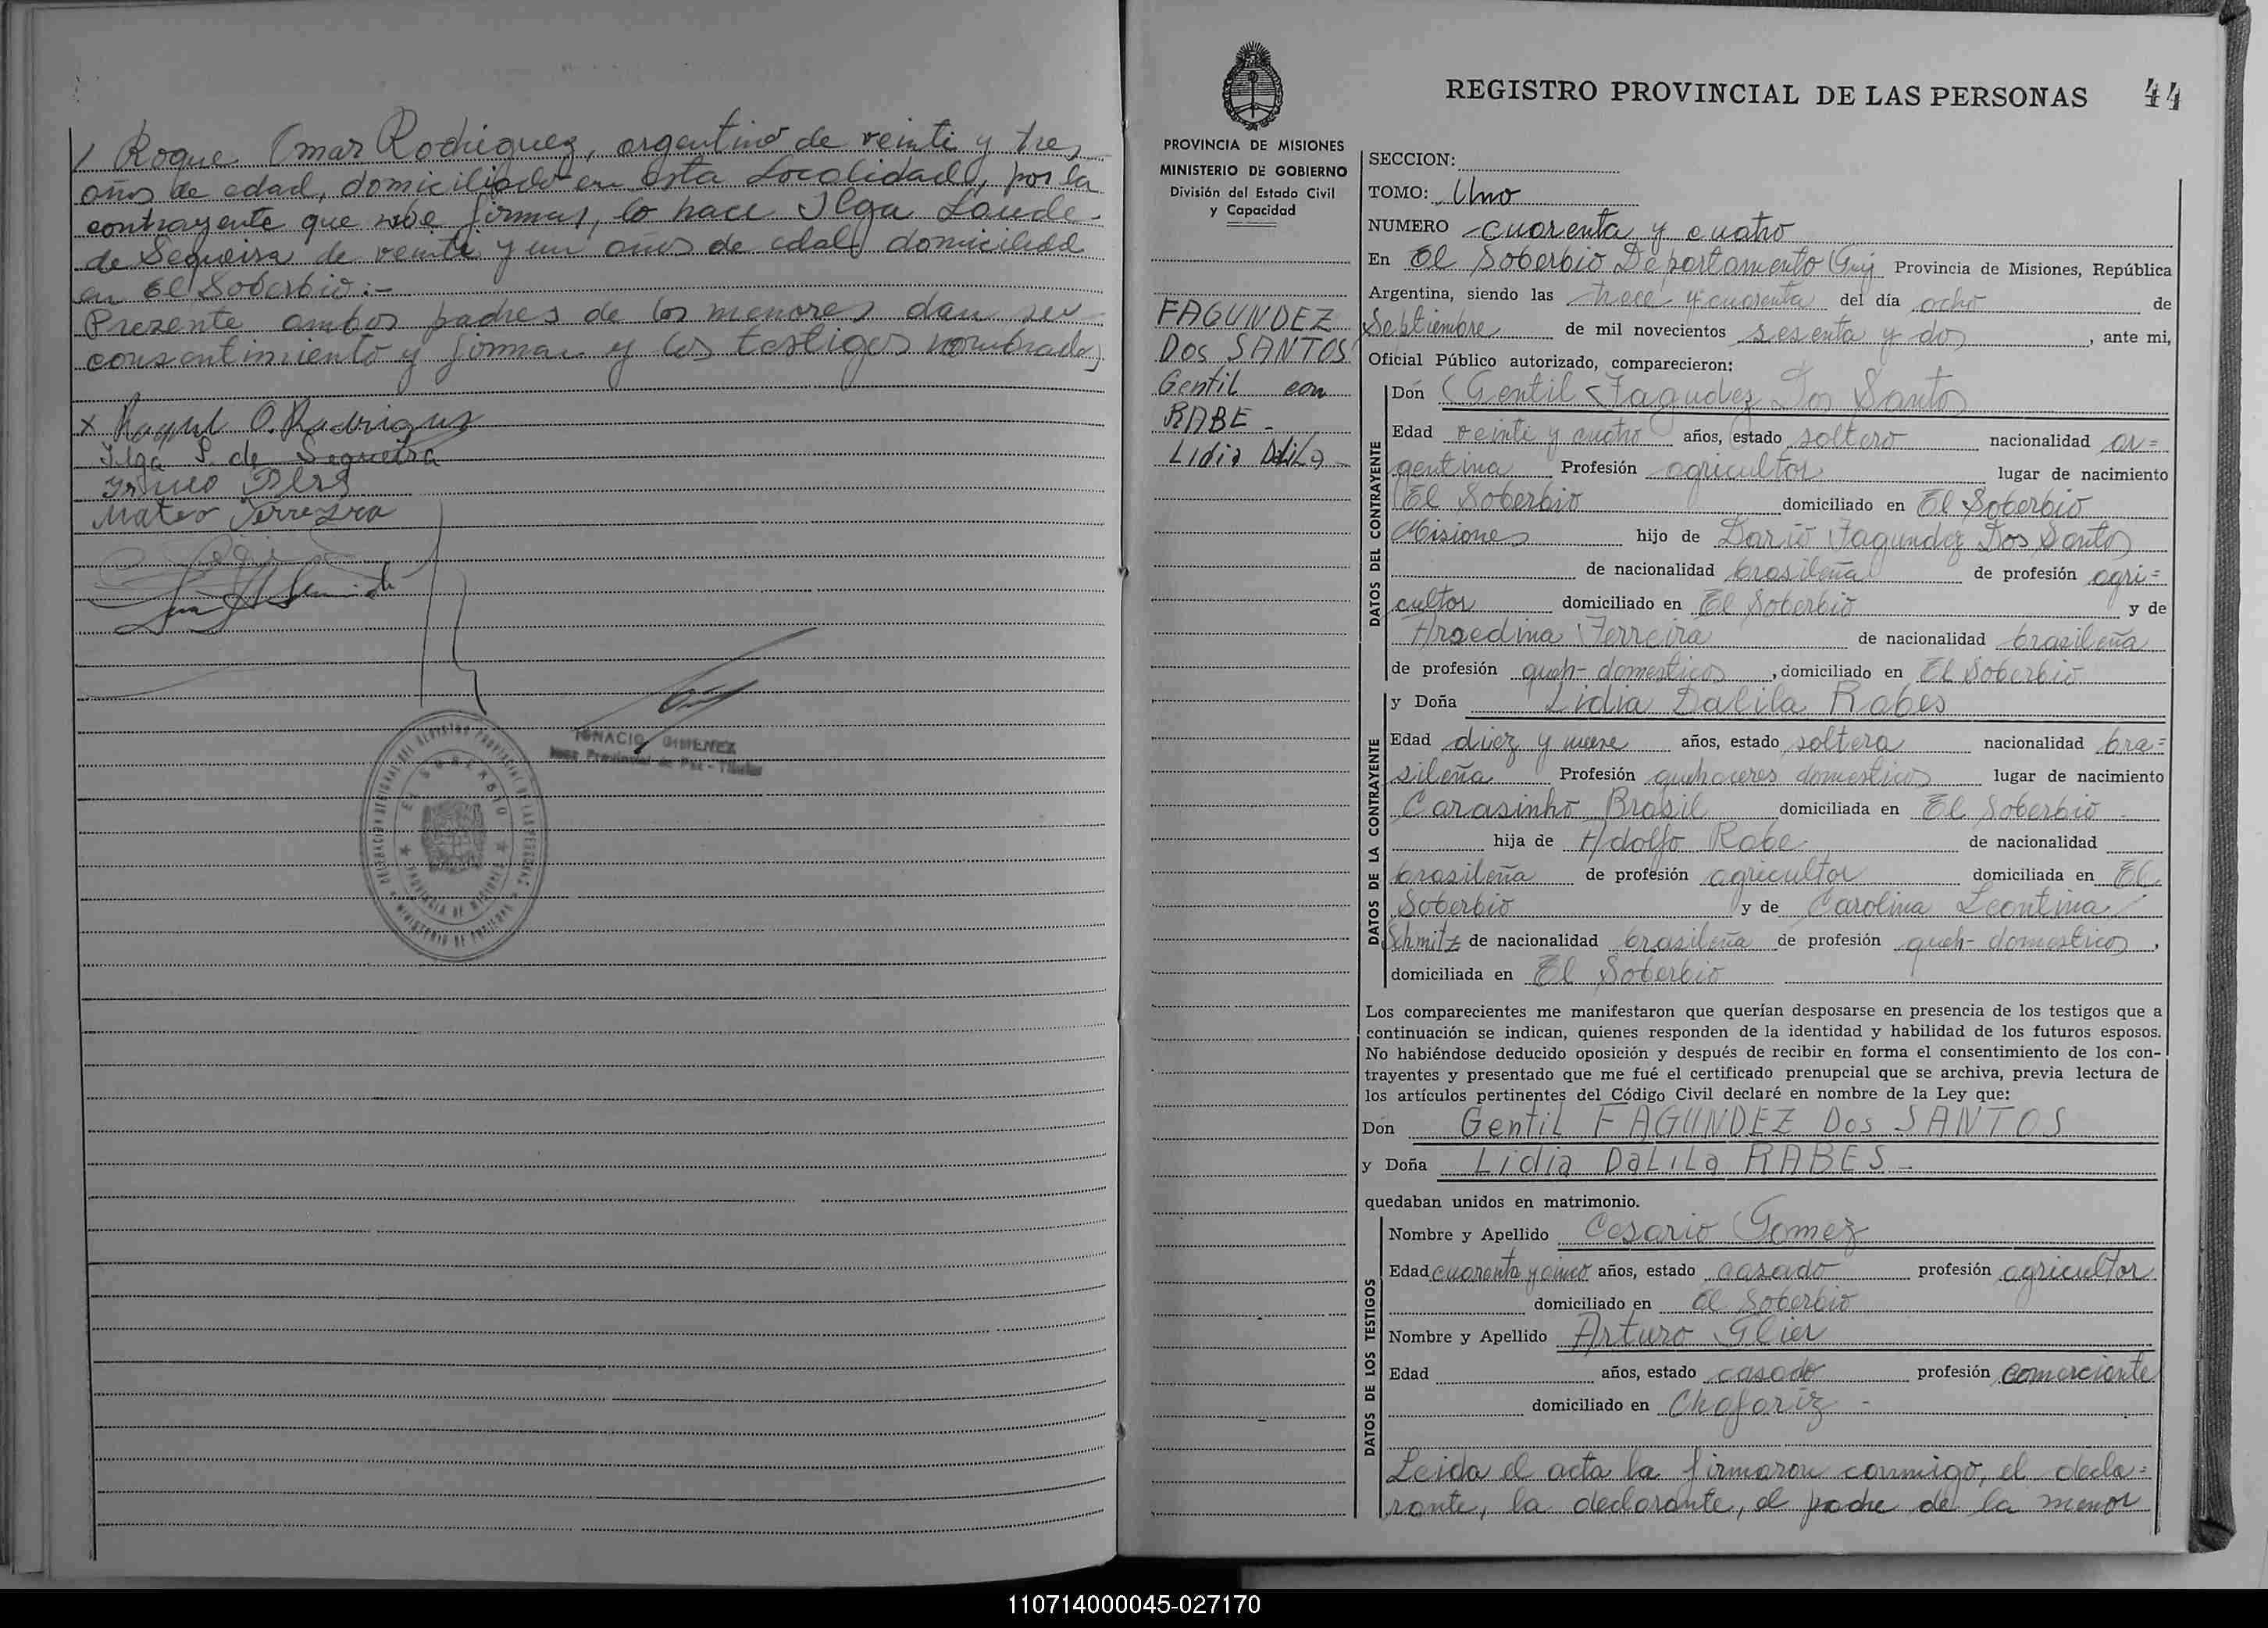 / Roque Omar Rodriguez, argentino de veinte y tres
años de edad, domiciliado en esta Localidad, por la
contrayente que no sabe firmar, lo hace Ilga
de Sequeira de veinte y un años de edad domiciliada
en El Soberbio:-
Prezente ambos padres de los menores dan su
consentimiento y firman y los testigos nombrados
x O. Rodriguez
Ilga S. de Sequeira
Mateo Ferreira
IGNACIO GIMENEZ
Juez Provincial de Paz - Titular
DELEGACION REGIONAL DEL REGISTRO PROVINCIAL DE LAS PERSONAS
EL SOBERBIO
PROVINCIA DE MISIONES
MINISTERIO DE GOBIERNO
REGISTRO PROVINCIAL DE LAS PERSONAS 44
PROVINCIA DE MISIONES
MINISTERIO DE GOBIERNO
División del Estado Civil
y Capacidad
FAGUNDEZ
DOS SANTOS
Gentil con
RABE -
Lidia Dalila -
SECCION:
TOMO: Uno
NUMERO cuarenta y cuatro
En El Soberbio Departamento Guij Provincia de Misiones, República
Argentina, siendo las trece y cuarenta del día ocho de
Septiembre de mil novecientos sesenta y dos, ante mi,
Oficial Público autorizado, comparecieron:
DATOS DEL CONTRAYENTE
Don Gentil Fagudez Dos Santos
Edad veinte y cuatro años, estado soltero nacionalidad ar=
gentina Profesión agricultor lugar de nacimiento
El Soberbio domiciliado en El Soberbio
Misiones hijo de Dario Fagundez Dos Santos
de nacionalidad brasileña de profesión agri=
cultor domiciliado en El Soberbio y de
Araedina Ferreira de nacionalidad brasileña
de profesión queh- domesticos, domiciliado en El Soberbio
DATOS DE LA CONTRAYENTE
y Doña Lidia Dalila Rabes
Edad diez y nueve años, estado soltera nacionalidad bra=
sileña Profesión quehaceres domesticos lugar de nacimiento
Carasinho Brasil domiciliada en El Soberbio -
hija de Adolfo Rabe de nacionalidad
brasileña de profesión agricultor domiciliada en El
Soberbio y de Carolina Leontina /
Schmitz de nacionalidad brasileña de profesión queh- domesticos,
domiciliada en El Soberbio
Los comparecientes me manifestaron que querían desposarse en presencia de los testigos que a
continuación se indican, quienes responden de la identidad y habilidad de los futuros esposos.
No habiéndose deducido oposición y después de recibir en forma el consentimiento de los con-
trayentes y presentado que me fué el certificado prenupcial que se archiva, previa lectura de
los artículos pertinentes del Código Civil declaré en nombre de la Ley que:
Don Gentil FAGUNDEZ Dos SANTOS
y Doña Lidia DaLiLa RABES -
quedaban unidos en matrimonio.
DATOS DE LOS TESTIGOS
Nombre y Apellido Cesario Gomez
Edad cuarenta y cinco años, estado casado profesión agricultor
domiciliado en El Soberbio
Nombre y Apellido Arturo Glier
Edad años, estado casado profesión comerciante
domiciliado en Chafariz -
Leida el acta la firmaron conmigo, el decla=
rante, la declarante, el padre de la menor
110714000045-027170